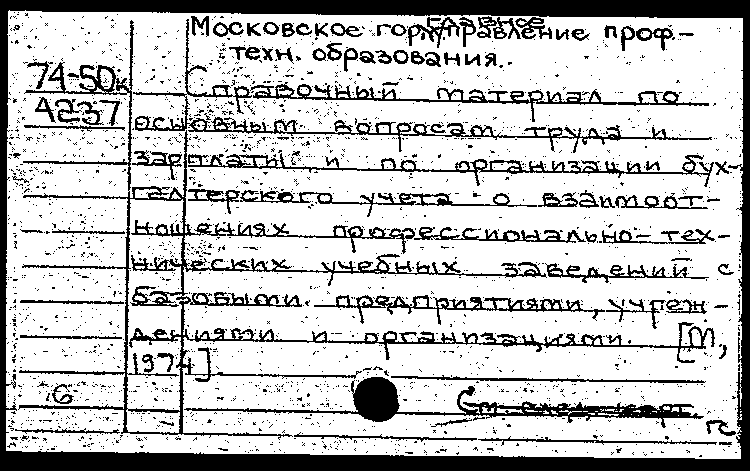 главное
Московское гор. управление проф-
техн. образования.
74-50к
4237
Справочный материал по
основным вопросам труда и
зарплаты и по организации бух-
галтерского учета о взаимоот-
ношениях профессионально-тех-
нических учебных заведений с
базовыми предприятиями, учреж-
дениями и организациями. [М,
1974]
6
См. след. карт.